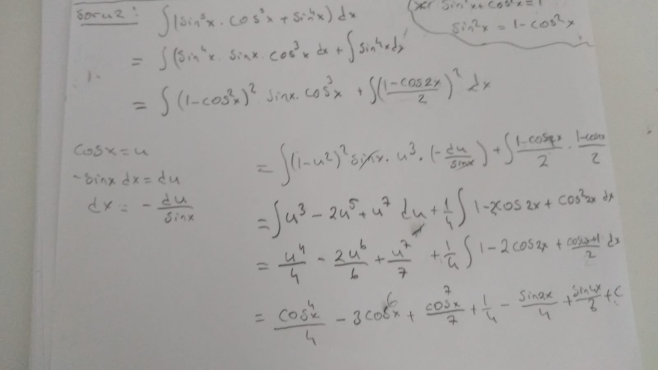 Soru 2: ∫(sin⁵x · cos³x + sin⁴x) dx
sin²x + cos²x = 1
sin²x = 1 - cos²x
= ∫(sin⁴x · sinx · cos³x dx + ∫sin⁴x dx
= ∫(1-cos²x)² · sinx · cos³x + ∫((1-cos2x)/2)² dx
cosx = u
-sinx dx = du
dx = - du/sinx
= ∫(1-u²)² sinx · u³ · (-du/sinx) + ∫(1-cos2x)/2 · (1-cos2x)/2
= ∫u³ - 2u⁵ + u⁷ du + 1/4 ∫ 1-2cos2x + cos²2x dx
= u⁴/4 - 2u⁶/6 + u⁷/7 + 1/4 ∫ 1-2cos2x + (cos4x+1)/2 dx
= cos⁴x/4 - 3cos⁶x + cos⁷x/7 + 1/4 - sin2x/4 + sin4x/8 + C